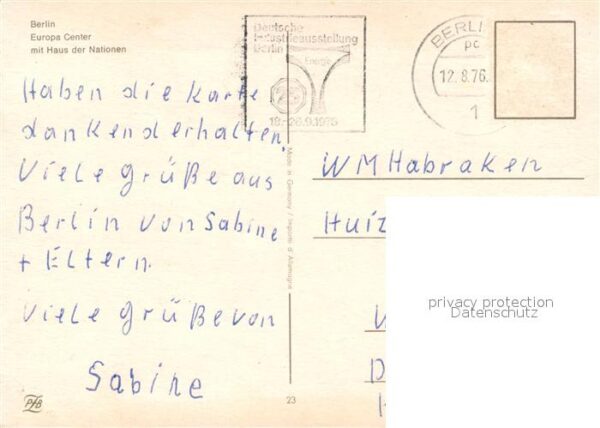 Berlin
Europa Center
mit Haus der Nationen
Deutsche
Industrieausstellung
Berlin
Energie
BERLIN
12.8.76
1
Haben die Karte
dankend erhalten.
Viele Grüße aus
Berlin von Sabine
+ Eltern.
Viele Grüße von
Sabine
Made in Germany / Importé d'Allemagne
WM Habraken
Huiz
V
D
privacy protection
Datenschutz
PfB
23